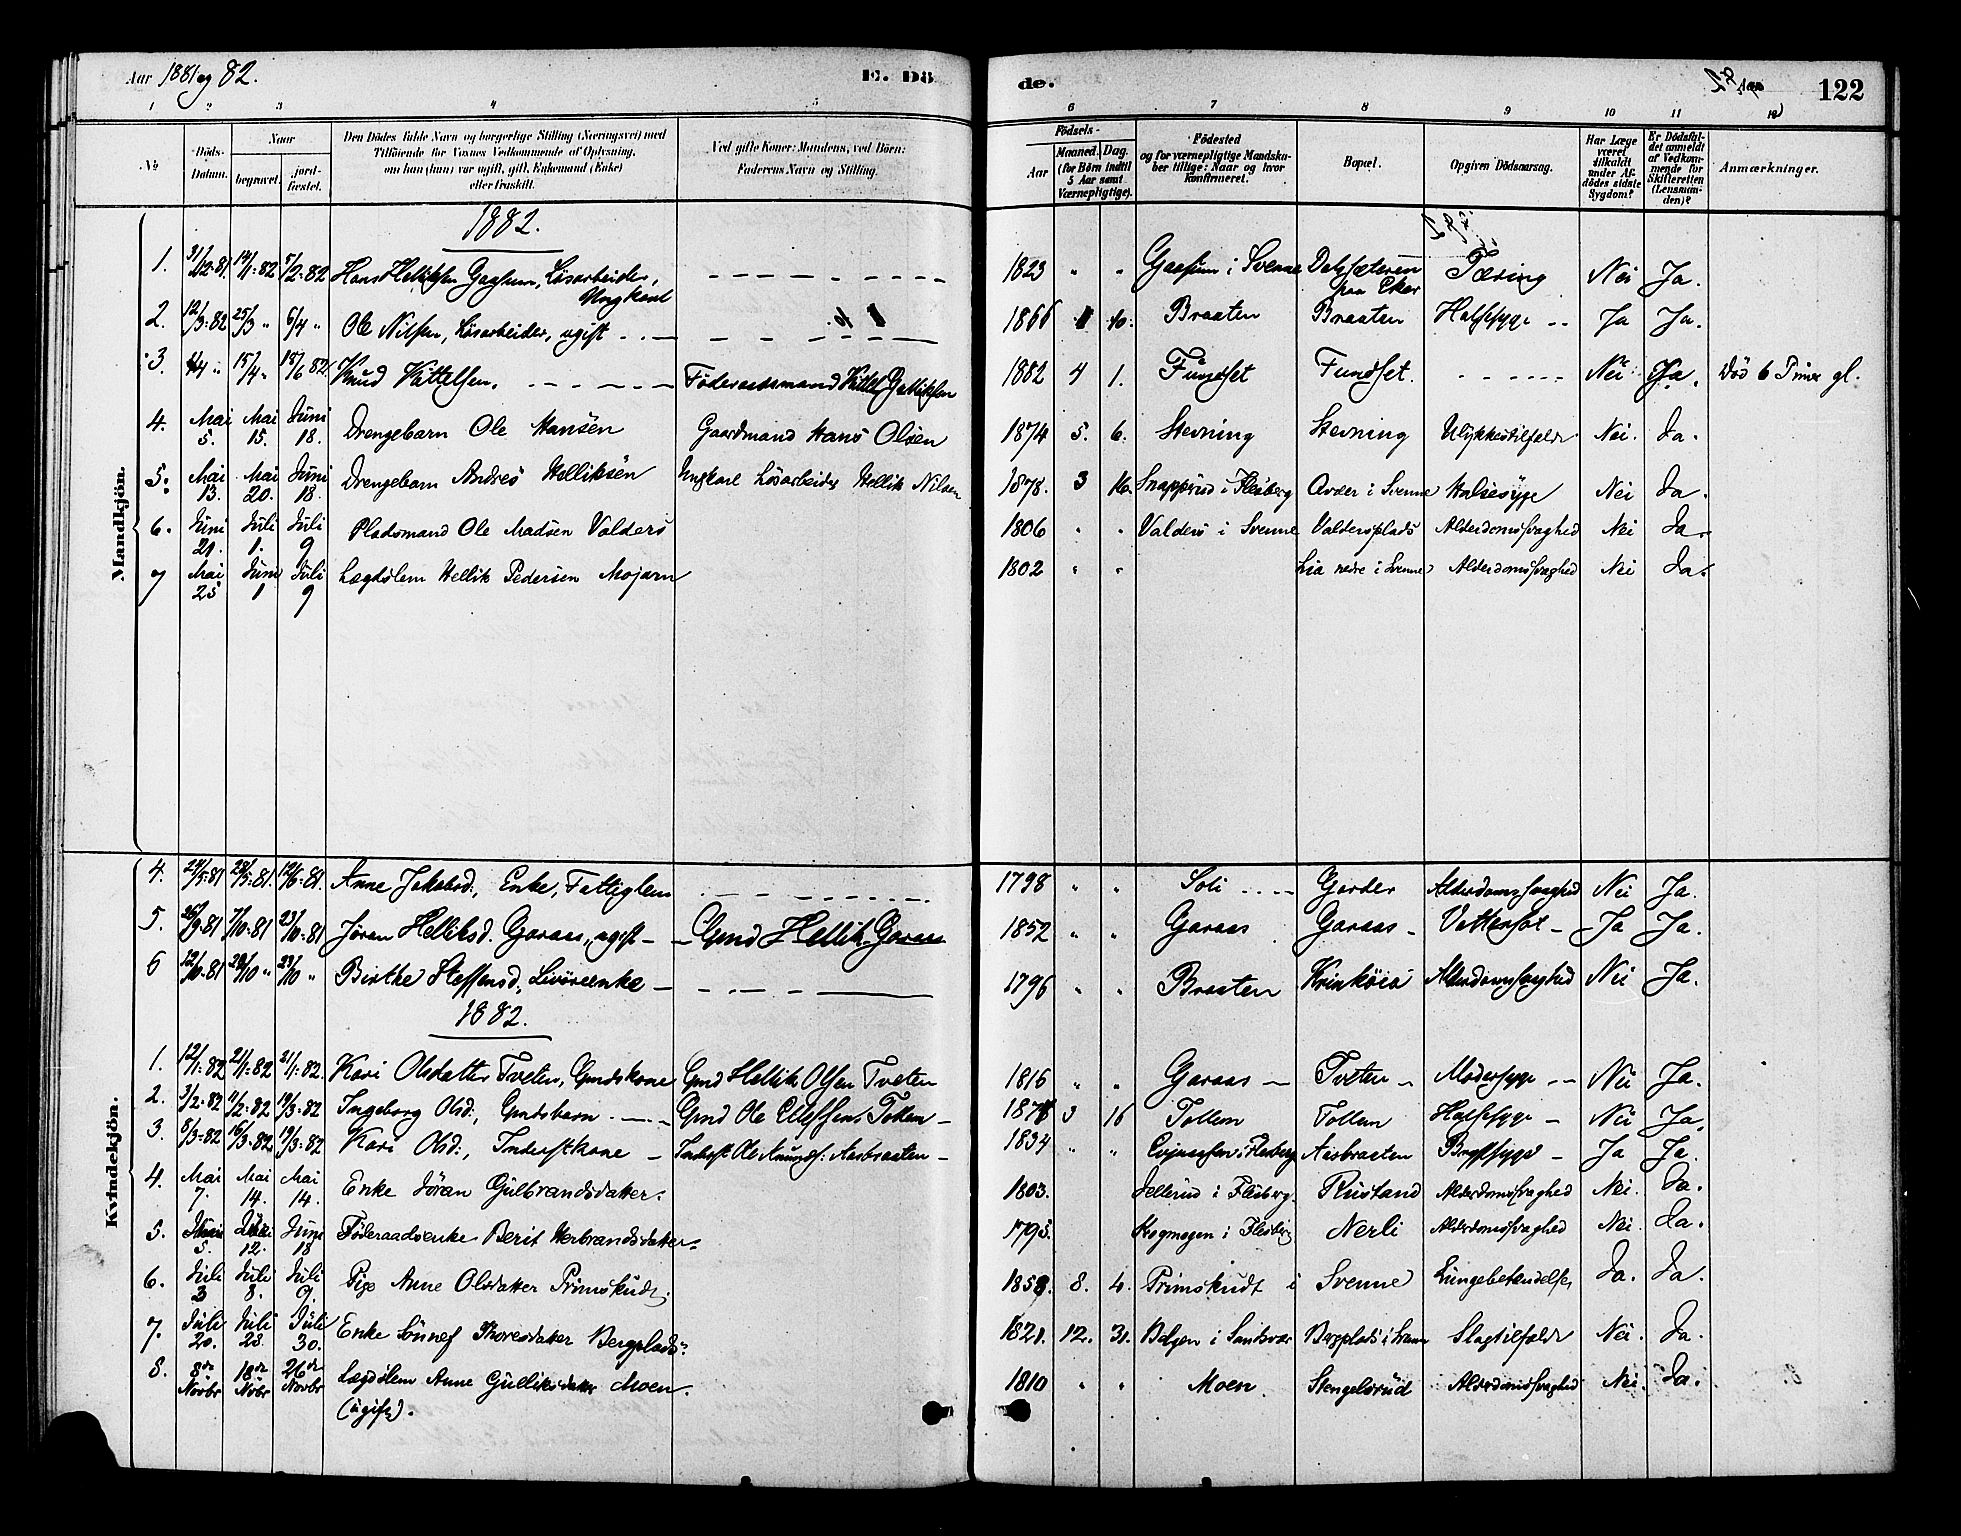 Aar 1881 og 82.
E. Dö
de.
122
1 2 3 4 5 6 7 8 9 10 11 12
No
Döds-Datum.
Naar
begravet.
jordfæstet.
Den Dödes fulde Navn og borgerlige Stilling (Næringsvei) med Tilföiende for Voxnes Vedkommende af Oplysning, om han (hun) var ugift, gift, Enkemand (Enke) eller fraskilt.
Ved gifte Koner: Mandens, ved Börn: Faderens Navn og Stilling.
Födsels-
Aar
Maaned. Dag.
(for Börn indtil 5 Aar samt Værnepligtige).
Födested og for værnepligtige Mandskaber tillige: Naar og hvor konfirmeret.
Bopæl.
Opgiven Dödsaarsag.
Har Læge været tilkaldt under Afdödes sidste Sygdom?
Er Dödsfaldet anmeldt af Vedkommende for Skifteretten (Lensmanden)?
Anmærkninger.
Mandkjön.
1882.
1. 31/12-81. 14/1-82 5/2-82 Hans Helliksen Gaasum, Løsarbeider, Ungkarl 1823 " " Gaasum i Svenne Dalsæteren paa Eker Tæring Nei Ja.
2. 12/3-82 25/3 " 6/4 " Ole Nilsen, Løsarbeider, ugift 1866 10. Braaten Braaten Halssyge Ja Ja.
3. 4/4 " 15/4 " 18/6 82 Knud Kittelsen. Føderaadsmand Kittel Gulliksen 1882 4 1. Fundset Fundset. Nei Ja. Død 6 Timer gl.
4. Mai 5. Mai 15. Juni 18. Drengebarn Ole Hansen Gaardmand Hans Olsen 1874 5. 6. Stevning Stevning Ulykkestilfælde Nei. Ja.
5. Mai 13. Mai 20. Juni 18. Drengebarn Andres Helliksen Ungkarl Løsarbeider Hellik Nilsen 1878. 3 16. Snapprud i Flesberg Avder i Svenne Halsesyge Nei Ja.
6. Juni 21. Juli 1. Juli 9 Pladsmand Ole Madsen Valders 1806 " " Valders i Svenne Valdersplads Alderdomssvaghed Nei Ja.
7 Mai 25 Juni 1 Juli 9 Lægdslem Hellik Pedersen Mojarn 1802 " " Lia nedre i Svenne Alderdomssvaghed Nei Ja.
Kvindekjön.
4. 24/5-81 28/5-81. 12/6-81. Anne Jakobsd., Enke, Fattiglem 1798 " " Soli Garder Alderdomssvaghed Nei Ja.
5. 26/9-81 7/10-81 23/10-81 Jøran Helliksd. Garaas, ugift Gmd Hellik Garaas 1852 " " Garaas Garaas Vattersot Ja Ja.
6 12/10-81 20/10 " 23/10 " Birthe Steffensd., Livøreenke 1796 " " Braaten Alderdomssvaghed Nei Ja.
1882.
1. 12/1-82 21/1-82 21/1-82. Kari Olsdatter Tveten, Gmdskone Gmd Hellik Olsen Tveten 1816 " " Garaas Tveten Modersyge Nei Ja.
2. 3/2-82 11/2-82 19/3-82 Ingeborg Olsd., Gmdsbarn Gmd Ole Ellefsen Tollen 1878 3 16 Tollem Tollem Halssyge Nei Ja.
3. 8/3-82 16/3-82. 19/3-82 Kari Olsd., Inderstkone Inderst Ole Amunds. Aasbraaten 1834 " " i Flesberg Aasbraaten Brystsyge Ja Ja.
4. Mai 7. Mai 14. Mai 14. Enke Jöran Gulbrandsdatter. 1803. Jellerud i Flesberg. Rustand Alderdomssvaghed Nei. Ja.
5. Juni 5. Juni 12. Juni 18 Føderaadsenke Berit Herbrandsdatter. 1795. i Flesberg Nerli Alderdomssvaghed Nei. Ja.
6. Juli 3 Juli 8. Juli 9. Pige Anne Olsdatter Primskudt. 1858. 8. 4. Primskudt i Svenne Lungebetændelse Ja. Ja.
7. Juli 20. Juli 28. Juli 30. Enke Sönnef Thoresdatter Bergplads 1821. 12. 31. Bolgen i Sandsvær Bergplads i Svenne Slagtilfælde Nei. Ja.
8. 8de Novbr 18de Novbr 26de Novbr Lægdslem Anne Gulliksdatter Moen. (ugift). 1810 " " Moen Stengelsrud Alderdomssvaghed Nei. Ja.